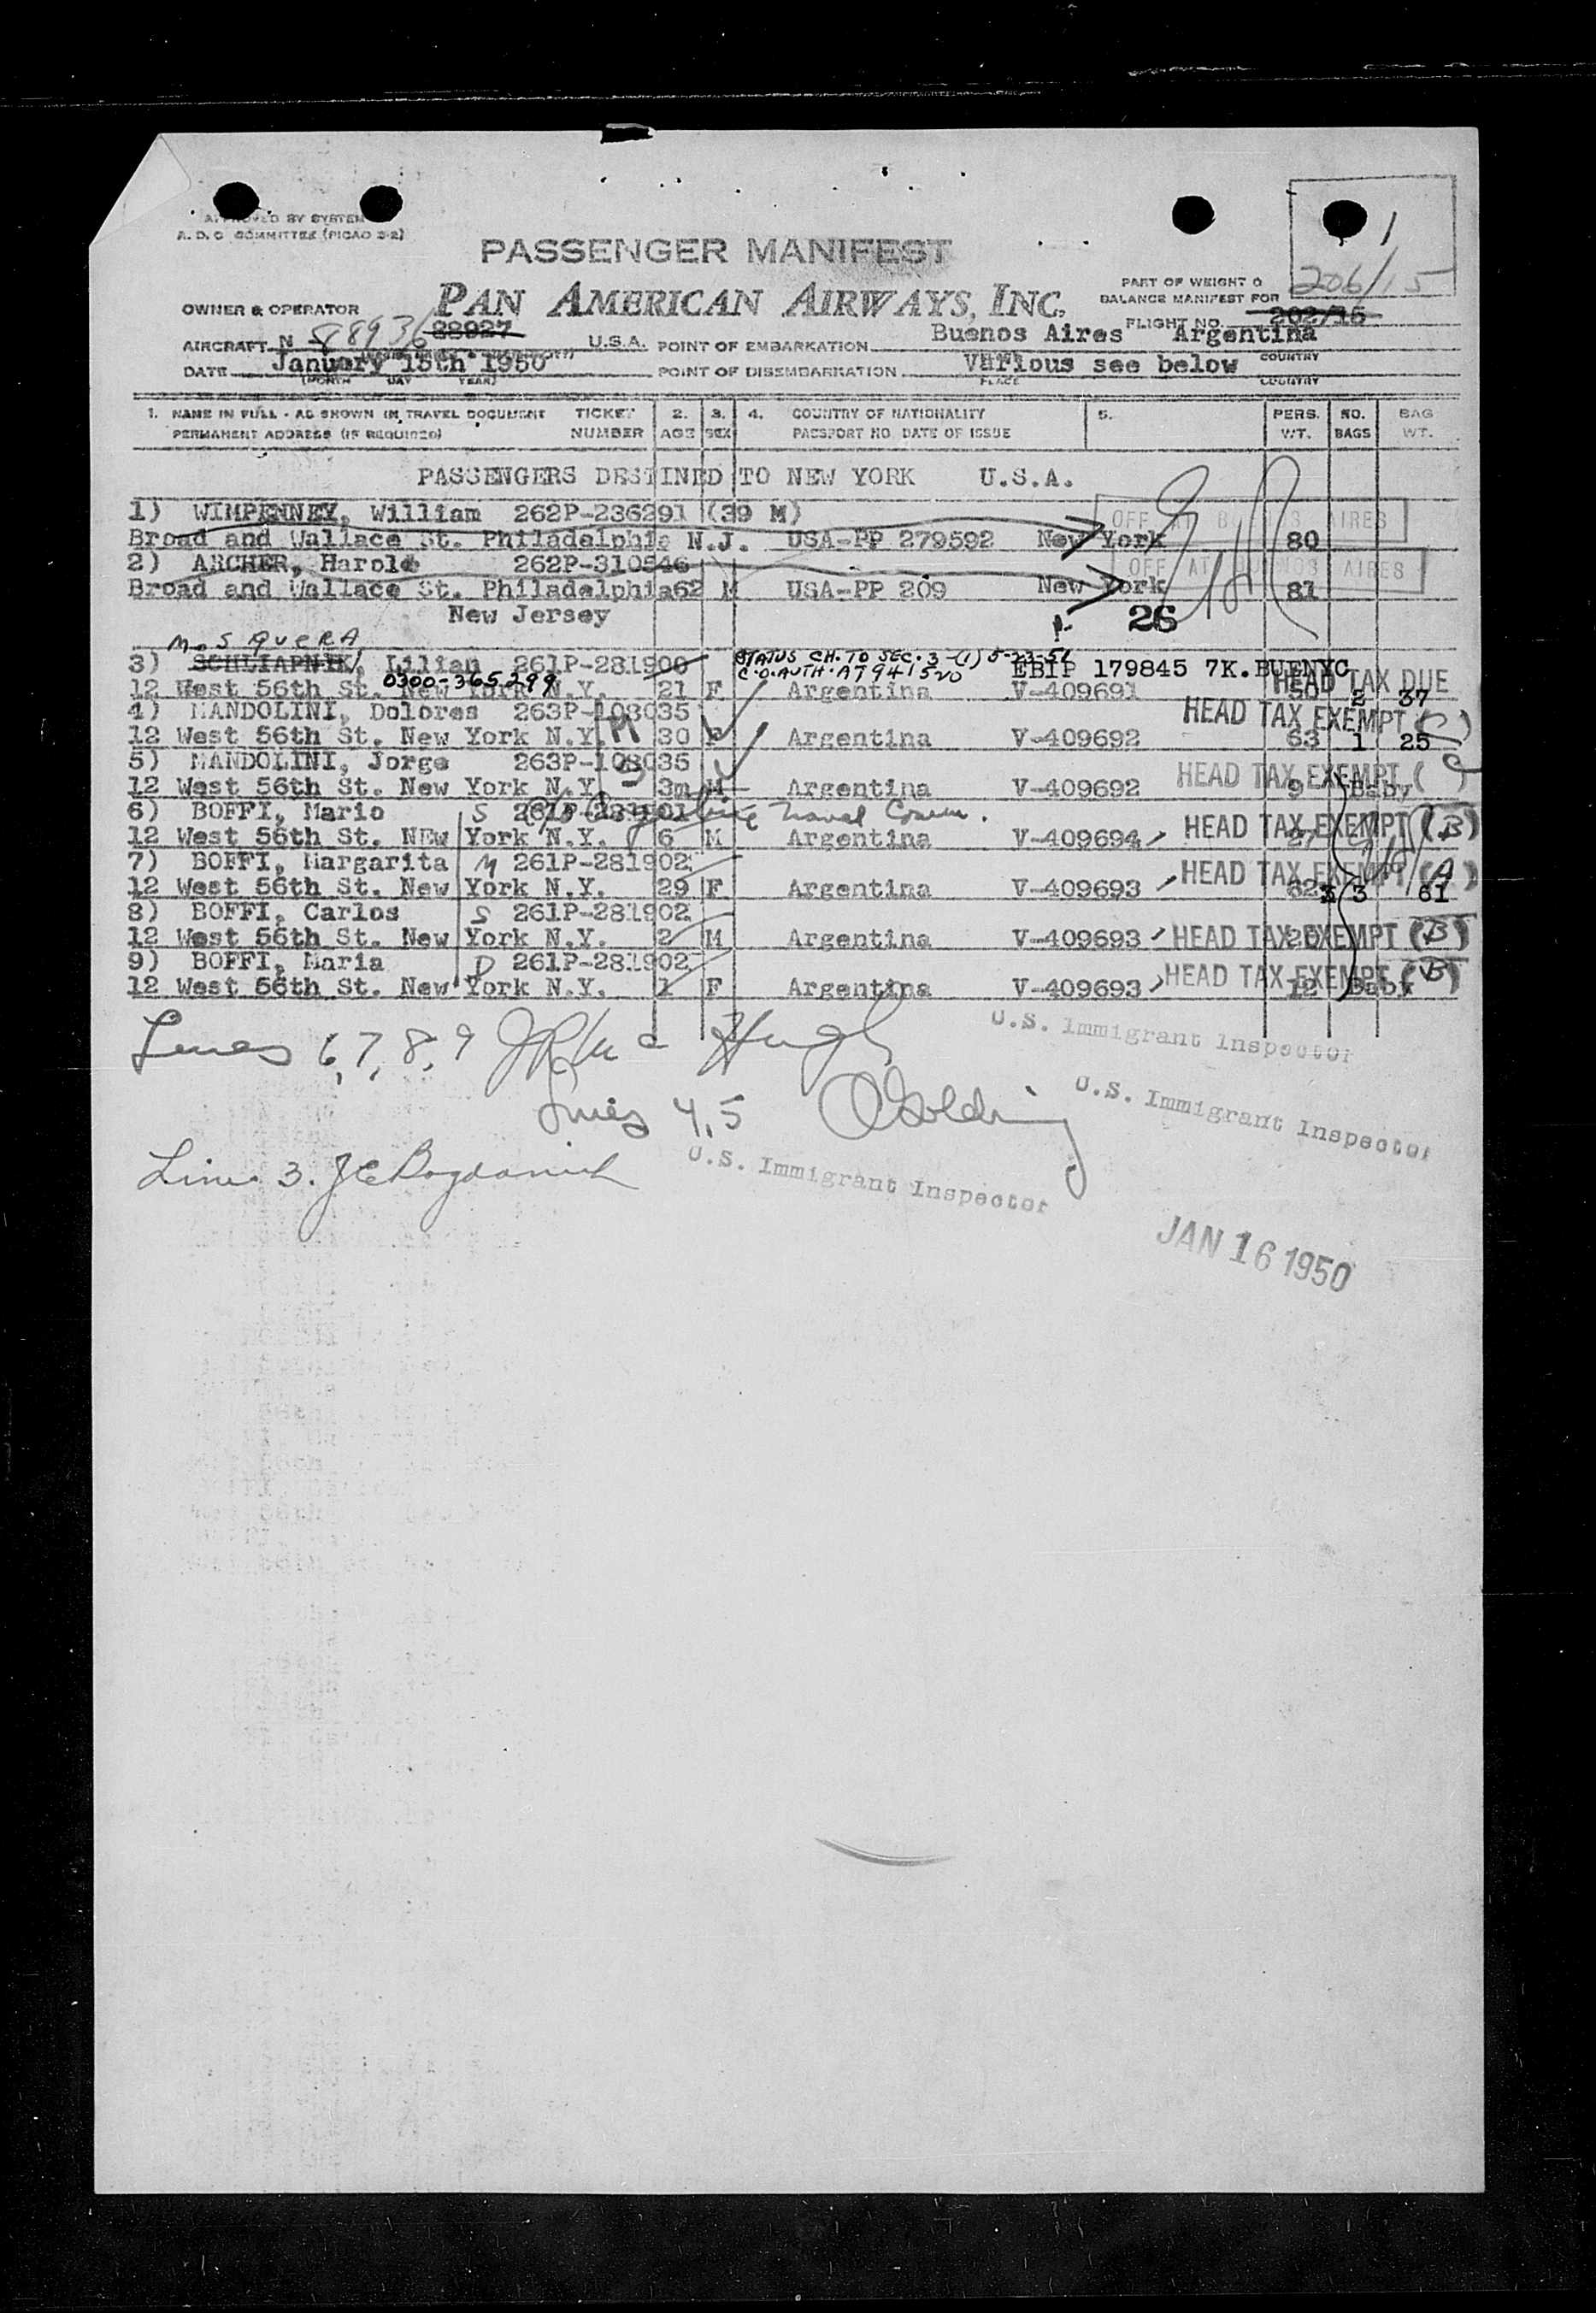 APPROVED BY SYSTEM
A. D. C COMMITTEE (PICAO 3-2)
1
PASSENGER MANIFEST
PART OF WEIGHT &
BALANCE MANIFEST FOR
206/15
OWNER & OPERATOR PAN AMERICAN AIRWAYS, INC.
FLIGHT NO. 202/15
AIRCRAFT N 88936 88927 U.S.A. POINT OF EMBARKATION Buenos Aires Argentina
DATE January 15th 1950 POINT OF DISEMBARKATION Various see below COUNTRY
(MONTH DAY YEAR) PLACE COUNTRY
1. NAME IN FULL - AS SHOWN IN TRAVEL DOCUMENT TICKET 2. 3. 4. COUNTRY OF NATIONALITY 5. PERS. NO. BAG
PERMANENT ADDRESS (IF REQUIRED) NUMBER AGE SEX PASSPORT NO. DATE OF ISSUE WT. BAGS WT.
PASSENGERS DESTINED TO NEW YORK U.S.A.
1) WIMPENNEY, William 262P-236291 (39 M) OFF AT BUENOS AIRES
Broad and Wallace St. Philadelphia N.J. USA-PP 279592 New York 80
2) ARCHER, Harold 262P-310546 OFF AT BUENOS AIRES
Broad and Wallace St. Philadelphia 62 M USA-PP 209 New York 81
New Jersey 26
MOSQUERA
3) SCHLIAPNIK, Lilian 261P-281900 STATUS CH. TO SEC. 3-(1) 5-23-51 EBIP 179845 7K.BUENYC
0300-365299 C.O. AUTH. AT941520 HEAD TAX DUE
12 West 56th St. New York N.Y. 21 F Argentina V-409691 50 2 37
4) MANDOLINI, Dolores 263P-108035 HEAD TAX EXEMPT (C)
12 West 56th St. New York N.Y. M 30 F Argentina V-409692 63 1 25
5) MANDOLINI, Jorge 263P-108035 HEAD TAX EXEMPT
12 West 56th St. New York N.Y. S 3m M Argentina V-409692 9 Baby
6) BOFFI, Mario S 261P-281901 c/o Argentine Naval Comm.
12 West 56th St. NEw York N.Y. 6 M Argentina V-409694 HEAD TAX EXEMPT (B) 27
7) BOFFI, Margarita M 261P-281902
12 West 56th St. New York N.Y. 29 F Argentina V-409693 HEAD TAX EXEMPT (A) 62 3 61
8) BOFFI, Carlos S 261P-281902
12 West 56th St. New York N.Y. 2 M Argentina V-409693 HEAD TAX EXEMPT (B) 20
9) BOFFI, Maria D 261P-281902
12 West 56th St. New York N.Y. 1 F Argentina V-409693 HEAD TAX EXEMPT (B) 12 Baby
Lines 6,7,8,9 U.S. Immigrant Inspector
Lines 4,5 Golding U.S. Immigrant Inspector
Line 3. J C Bogdanich U.S. Immigrant Inspector
JAN 16 1950